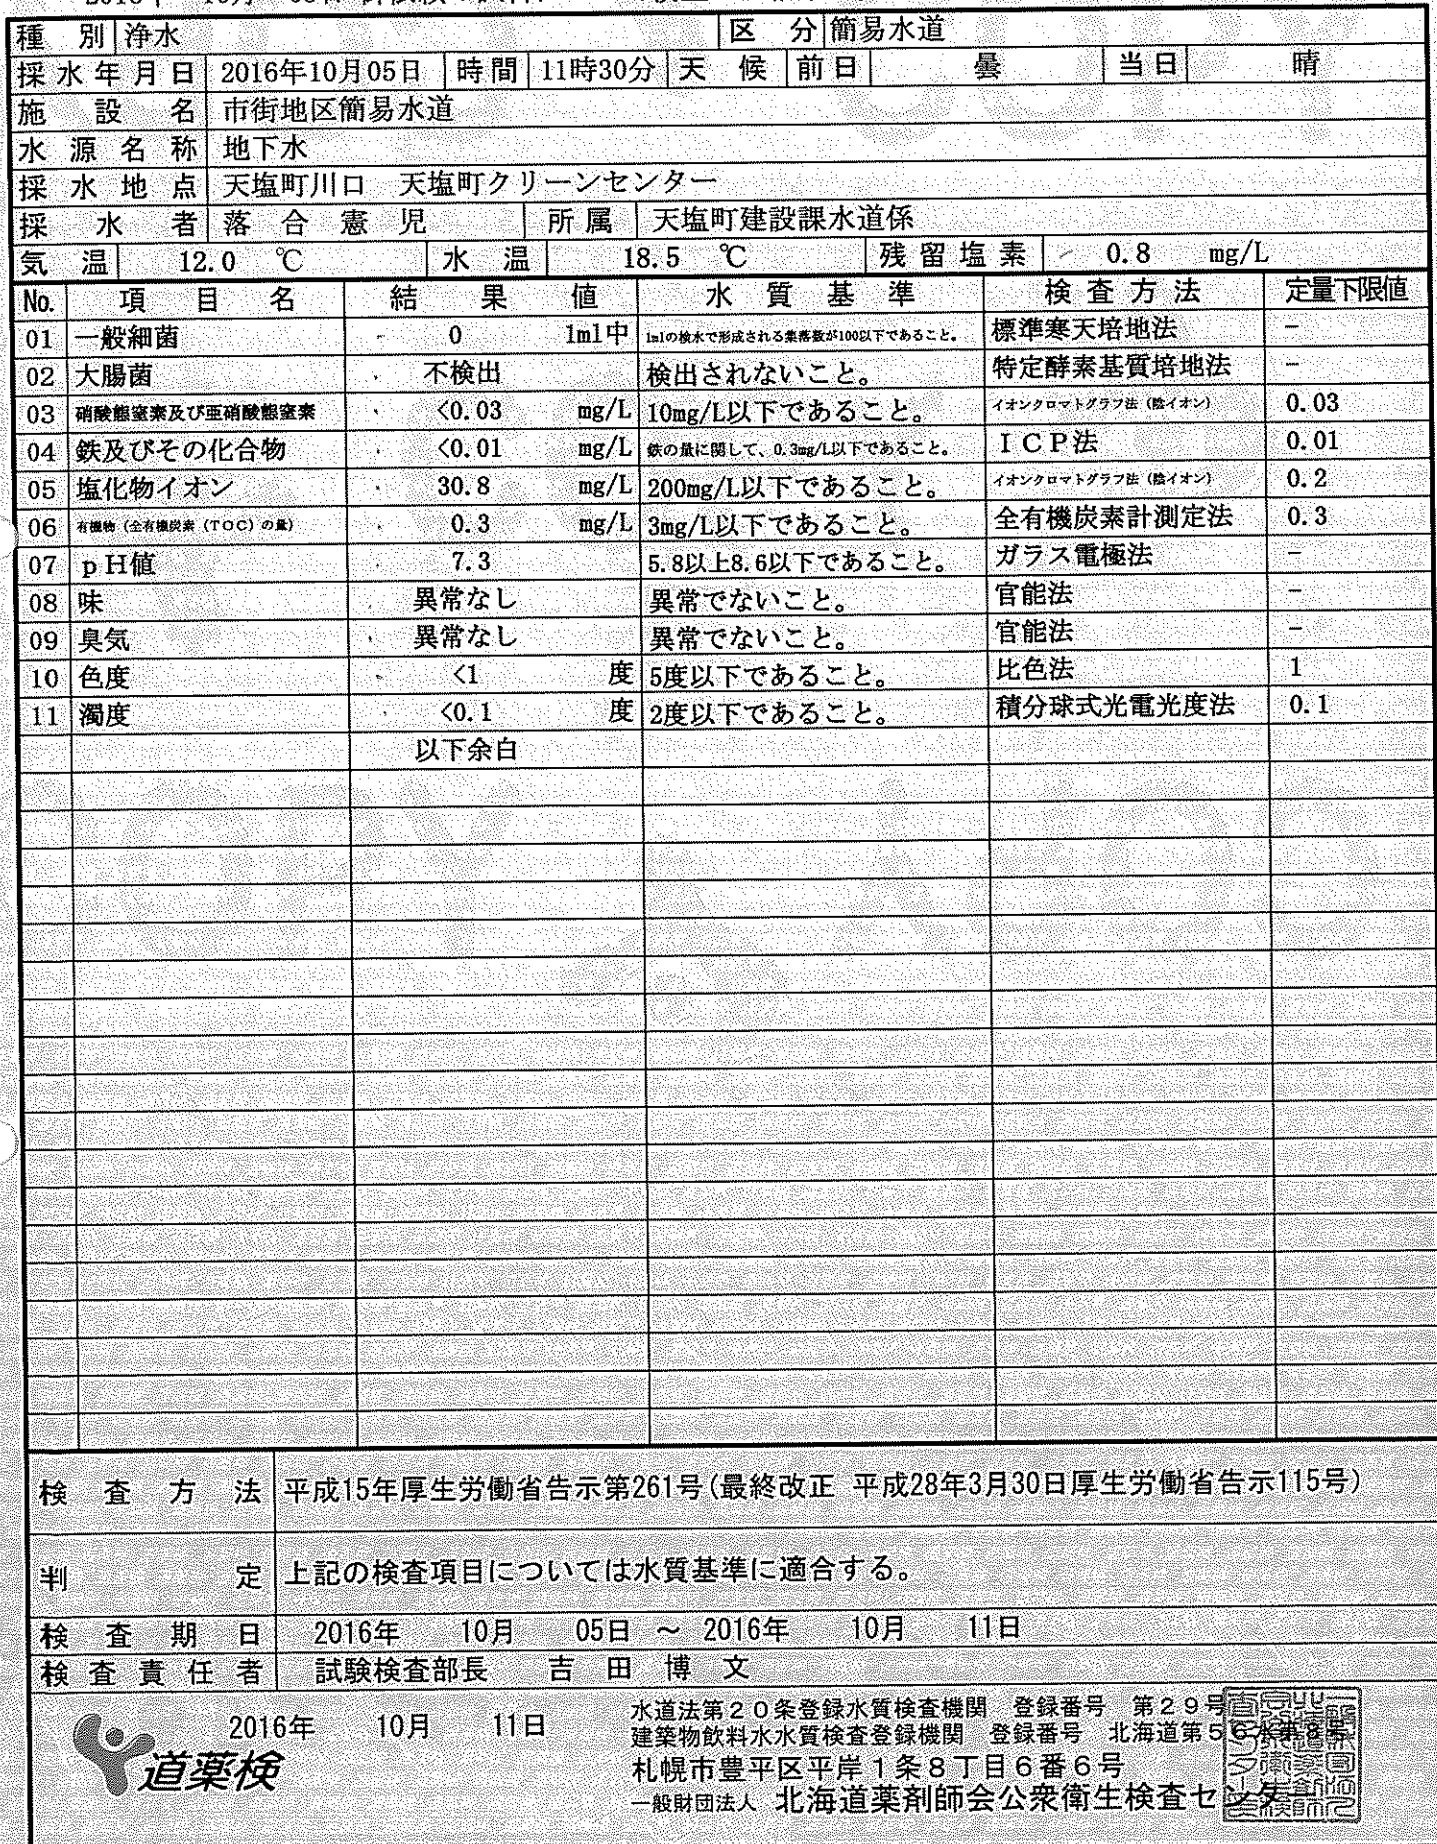 種別 浄水 区分 簡易水道
採水年月日 2016年10月05日 時間 11時30分 天候 前日 曇 当日 晴
施設名 市街地区簡易水道
水源名称 地下水
採水地点 天塩町川口 天塩町クリーンセンター
採水者 落合憲児 所属 天塩町建設課水道係
気温 12.0 ℃ 水温 18.5 ℃ 残留塩素 0.8 mg/L
No. 項目名 結果値 水質基準 検査方法 定量下限値
01 一般細菌 0 1ml中 1mlの検水で形成される集落数が100以下であること。 標準寒天培地法 −
02 大腸菌 不検出 検出されないこと。 特定酵素基質培地法 −
03 硝酸態窒素及び亜硝酸態窒素 <0.03 mg/L 10mg/L以下であること。 イオンクロマトグラフ法（陰イオン） 0.03
04 鉄及びその化合物 <0.01 mg/L 鉄の量に関して、0.3mg/L以下であること。 ＩＣＰ法 0.01
05 塩化物イオン 30.8 mg/L 200mg/L以下であること。 イオンクロマトグラフ法（陰イオン） 0.2
06 有機物（全有機炭素（ＴＯＣ）の量） 0.3 mg/L 3mg/L以下であること。 全有機炭素計測定法 0.3
07 ｐＨ値 7.3 5.8以上8.6以下であること。 ガラス電極法 −
08 味 異常なし 異常でないこと。 官能法 −
09 臭気 異常なし 異常でないこと。 官能法 −
10 色度 <1 度 5度以下であること。 比色法 1
11 濁度 <0.1 度 2度以下であること。 積分球式光電光度法 0.1
以下余白
検査方法 平成15年厚生労働省告示第261号(最終改正 平成28年3月30日厚生労働省告示115号)
判定 上記の検査項目については水質基準に適合する。
検査期日 2016年 10月 05日 ～ 2016年 10月 11日
検査責任者 試験検査部長 吉田博文
2016年 10月 11日
道薬検
水道法第２０条登録水質検査機関 登録番号 第２９号
建築物飲料水水質検査登録機関 登録番号 北海道第５６
札幌市豊平区平岸１条８丁目６番６号
一般財団法人 北海道薬剤師会公衆衛生検査センター